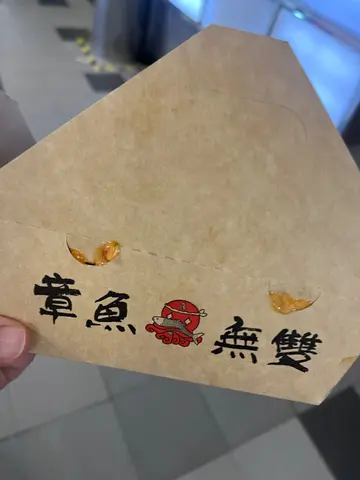 章魚無雙